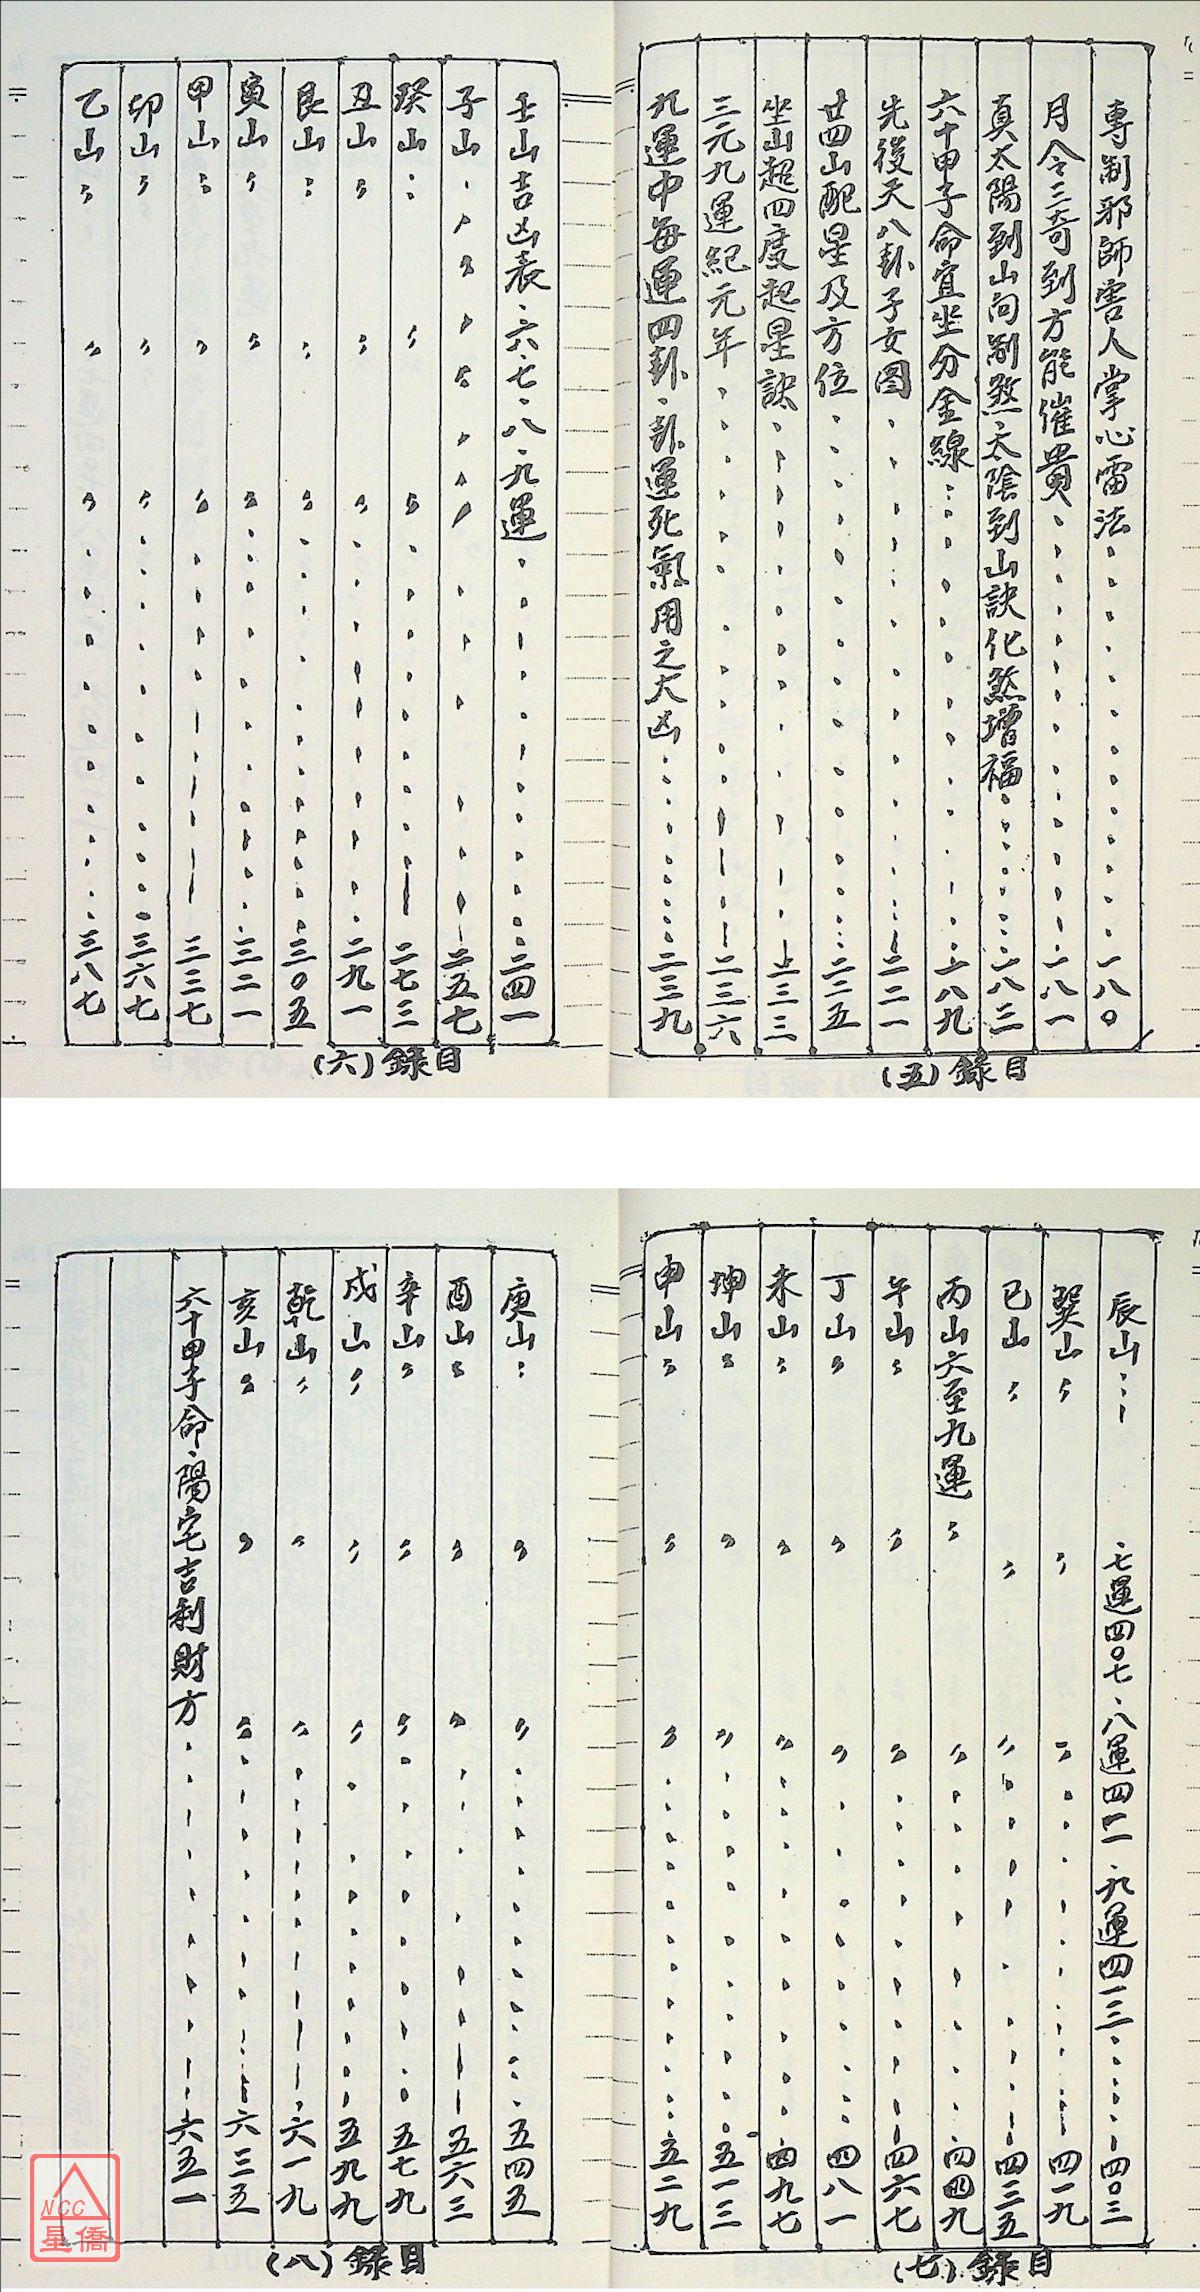 專制邪師害人掌心雷法 一八〇
月令三奇到方能催貴 一八一
真太陽到山向制煞、太陰到山訣化煞增福 一八三
六十甲子命宜坐分金線 一八九
先後天八卦子女图 二二一
廿四山配星及方位 二二五
坐山超四度起星訣 二三三
三元九運紀元年 二三六
九運中每運四卦、卦運死氣用之大凶 二三九
目錄(五)
壬山吉凶表、六、七、八、九運 二四一
子山 二五七
癸山 二七三
丑山 二九一
艮山 三〇五
寅山 三二一
甲山 三三七
卯山 三六七
乙山 三八七
目錄(六)
辰山 四〇三 、七運四〇七、八運四一一、九運四一三
巽山 四一九
巳山 四三五
丙山六至九運 四四九
午山 四六七
丁山 四八一
未山 四九七
坤山 五一三
申山 五二九
目錄(七)
庚山 五四五
酉山 五六三
辛山 五七九
戍山 五九九
乾山 六一九
亥山 六三五
六十甲子命、陽宅吉利財方 六五一
目錄(八)
NCC
星僑